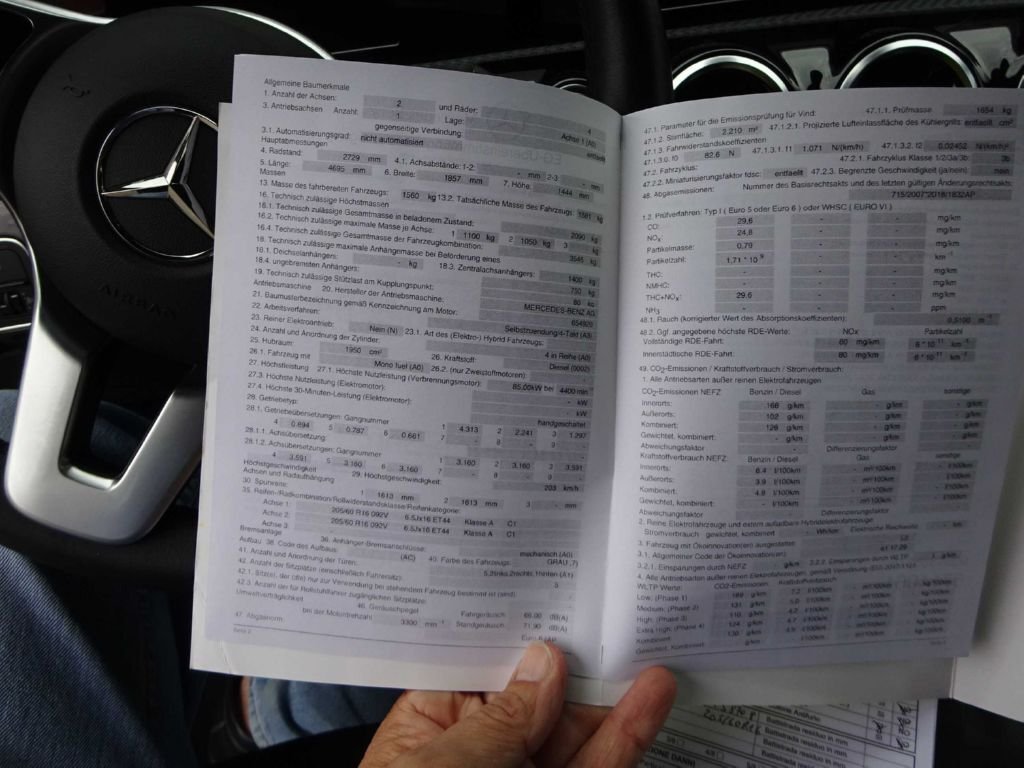 Allgemeine Baumerkmale
1. Anzahl der Achsen: 2 und Räder: 4
3. Antriebsachsen Anzahl: 1 Lage: Achse 1 (A0)
gegenseitige Verbindung: entfaellt
3.1. Automatisierungsgrad: nicht automatisiert
Hauptabmessungen
4. Radstand: 2729 mm 4.1. Achsabstände: 1-2: - mm 2-3 - mm
5. Länge: 4695 mm 6. Breite: 1857 mm 7. Höhe: 1444 mm
Massen
13. Masse des fahrbereiten Fahrzeugs: 1560 kg 13.2. Tatsächliche Masse des Fahrzeugs: 1581 kg
16. Technisch zulässige Höchstmassen
16.1. Technisch zulässige Gesamtmasse in beladenem Zustand: 2090 kg
16.2. Technisch zulässige maximale Masse je Achse: 1 1100 kg 2 1050 kg 3 - kg
16.4. Technisch zulässige Gesamtmasse der Fahrzeugkombination: 3545 kg
18. Technisch zulässige maximale Anhängemasse bei Beförderung eines
18.1. Deichselanhängers: - kg 18.3. Zentralachsanhängers: 1400 kg
18.4. ungebremsten Anhängers: 750 kg
19. Technisch zulässige Stützlast am Kupplungspunkt: 80 kg
Antriebsmaschine 20. Hersteller der Antriebsmaschine: MERCEDES-BENZ AG
21. Baumusterbezeichnung gemäß Kennzeichnung am Motor: 654920
22. Arbeitsverfahren: Selbstzuendung/4-Takt (A3)
23. Reiner Elektroantrieb: Nein (N) 23.1. Art des (Elektro-) Hybrid Fahrzeugs: -
24. Anzahl und Anordnung der Zylinder: 4 in Reihe (A0)
25. Hubraum: 1950 cm³ 26. Kraftstoff: Diesel (0002)
26.1. Fahrzeug mit Mono fuel (A0) 26.2. (nur Zweistoffmotoren):
27. Höchstleistung 27.1. Höchste Nutzleistung (Verbrennungsmotor): 85,00kW bei 4400 min
27.3. Höchste Nutzleistung (Elektromotor): - kW
27.4. Höchste 30-Minuten-Leistung (Elektromotor): - kW
28. Getriebetyp: handgeschaltet
28.1. Getriebeübersetzungen: Gangnummer 1 4.313 2 2.241 3 1.297
4 0.894 5 0.787 6 0.661 7 - 8 - 9 -
28.1.1. Achsübersetzung:
28.1.2. Achsübersetzungen: Gangnummer 1 3.160 2 3.160 3 3.591
4 3.591 5 3.160 6 3.160 7 - 8 - 9 -
Höchstgeschwindigkeit 29. Höchstgeschwindigkeit: 203 km/h
Achsen und Radaufhängung
30. Spurweite: 1 1613 mm 2 1613 mm 3 - mm
35. Reifen-/Radkombination/Rollwiderstandsklasse/Reifenkategorie:
Achse 1: 205/60 R16 092V 6.5Jx16 ET44 Klasse A C1
Achse 2: 205/60 R16 092V 6.5Jx16 ET44 Klasse A C1
Achse 3:
Bremsanlage 36. Anhänger-Bremsanschlüsse: mechanisch (A0)
Aufbau 38. Code des Aufbaus: (AC) 40. Farbe des Fahrzeugs: GRAU
41. Anzahl und Anordnung der Türen:
42. Anzahl der Sitzplätze (einschließlich Fahrersitz): 5
42.1. Sitz(e), der (die) nur zur Verwendung bei stehendem Fahrzeug bestimmt ist (sind):
42.3. Anzahl der für Rollstuhlfahrer zugänglichen Sitzplätze:
Umweltverträglichkeit 46. Geräuschpegel Fahrgeräusch: 68.00 dB(A)
bei der Motordrehzahl 3300 min⁻¹ Standgeräusch: 71.90 dB(A)
47. Abgasnorm:
Seite 2
47.1. Parameter für die Emissionsprüfung für Vind: 47.1.1. Prüfmasse 1654 kg
47.1.2. Stirnfläche: 2,210 m² 47.1.2.1. Projizierte Lufteinlassfläche des Kühlergrills: entfaellt cm²
47.1.3. Fahrwiderstandskoeffizienten
47.1.3.0. f0 82.6 N 47.1.3.1. f1 1.071 N/(km/h) 47.1.3.2. f2 0.02452 N/(km/h)²
47.2. Fahrzyklus: 47.2.1. Fahrzyklus Klasse 1/2/3a/3b: 3b
47.2.2. Miniaturisierungsfaktor fdsc: entfaellt 47.2.3. Begrenzte Geschwindigkeit (ja/nein): nein
48. Abgasemissionen: Nummer des Basisrechtsakts und des letzten gültigen Änderungsrechtsakts:
715/2007*2018/1832AP
1.2. Prüfverfahren: Typ I ( Euro 5 oder Euro 6 ) oder WHSC ( EURO VI )
CO: 29,6 - - mg/km
NOx: 24,8 - - mg/km
Partikelmasse: 0,79 - - mg/km
Partikelzahl: 1,71 * 10 9 - - km⁻¹
THC: - - - mg/km
NMHC: - - - mg/km
THC+NOx: 29,6 - - mg/km
NH3: - - - ppm
48.1. Rauch (korrigierter Wert des Absorptionskoeffizienten): 0,5100 m⁻¹
48.2. Ggf. angegebene höchste RDE-Werte: NOx Partikelzahl
Vollständige RDE-Fahrt: 80 mg/km 6 * 10 11 km⁻¹
Innerstädtische RDE-Fahrt: 80 mg/km 6 * 10 11 km⁻¹
49. CO2-Emissionen / Kraftstoffverbrauch / Stromverbrauch:
1. Alle Antriebsarten außer reinen Elektrofahrzeugen
CO2-Emissionen NEFZ Benzin / Diesel Gas sonstige
Innerorts: 168 g/km - g/km - g/km
Außerorts: 102 g/km - g/km - g/km
Kombiniert: 126 g/km - g/km - g/km
Gewichtet, kombiniert: - g/km - g/km - g/km
Abweichungsfaktor - Differenzierungsfaktor
Kraftstoffverbrauch NEFZ: Benzin / Diesel Gas sonstige
Innerorts: 6.4 l/100km - m³/100km - l/100km
Außerorts: 3.9 l/100km - m³/100km - l/100km
Kombiniert: 4.8 l/100km - m³/100km - l/100km
Gewichtet, kombiniert: - l/100km - m³/100km - l/100km
Abweichungsfaktor Differenzierungsfaktor
2. Reine Elektrofahrzeuge und extern aufladbare Hybridelektrofahrzeuge
Stromverbrauch gewichtet, kombiniert - Wh/km Elektrische Reichweite - km
3. Fahrzeug mit Ökoinnovation(en) ausgestattet:
3.1. Allgemeiner Code der Ökoinnovation(en):
3.2.1. Einsparungen durch NEFZ g/km 3.2.2. Einsparungen durch WLTP g/km
4. Alle Antriebsarten außer reinen Elektrofahrzeugen, gemäß Verordnung
WLTP Werte: CO2-Emissionen Kraftstoffverbrauch
Low: (Phase 1) 189 g/km 7.2 l/100km
Medium: (Phase 2) 131 g/km
High: (Phase 3) 110 g/km 4.2 l/100km
Extra High: (Phase 4) 124 g/km 4.7 l/100km
Kombiniert: 130 g/km 4.9 l/100km
Gewichtet, Kombiniert: g/km l/100km
AIRBAG
205/60R16
Battistrada residuo in mm
Battistrada residuo in mm